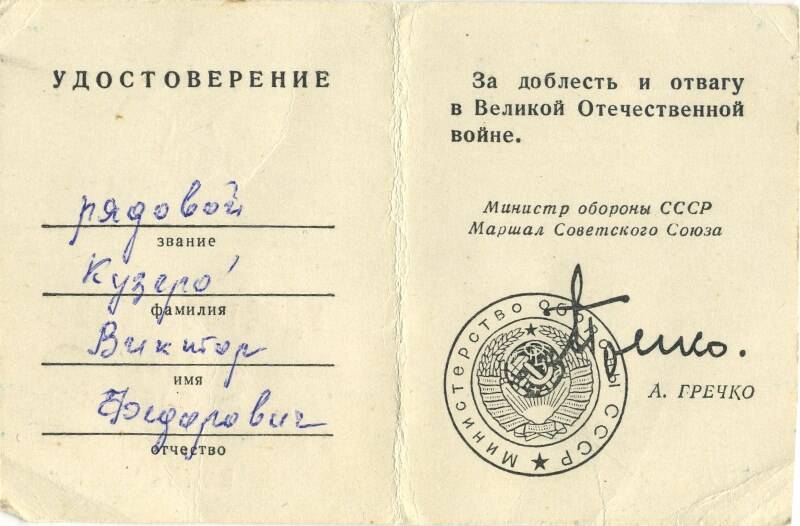 УДОСТОВЕРЕНИЕ
рядовой
звание
Кузеро
фамилия
Виктор
имя
Федорович
отчество
За доблесть и отвагу
в Великой Отечественной
войне.
Министр обороны СССР
Маршал Советского Союза
Министерство Обороны СССР
А. ГРЕЧКО